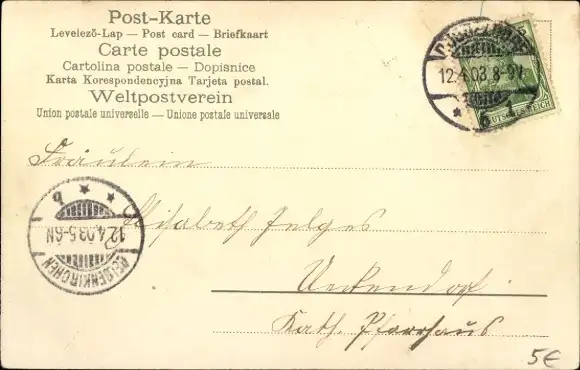 Post-Karte
Levelező-Lap — Post card — Briefkaart
Carte postale
Cartolina postale — Dopisnice
Karta Korespondencyjna Tarjeta postal.
Weltpostverein
Union postale universelle — Unione postale universale
12.4.03 8-9V
DEUTSCHES REICH
Fräulein
Elisabeth Jelges
Ueckendorf
Kath. Pfarrhaus
GELSENKIRCHEN
12.4.03.5-6N
* * b
5€